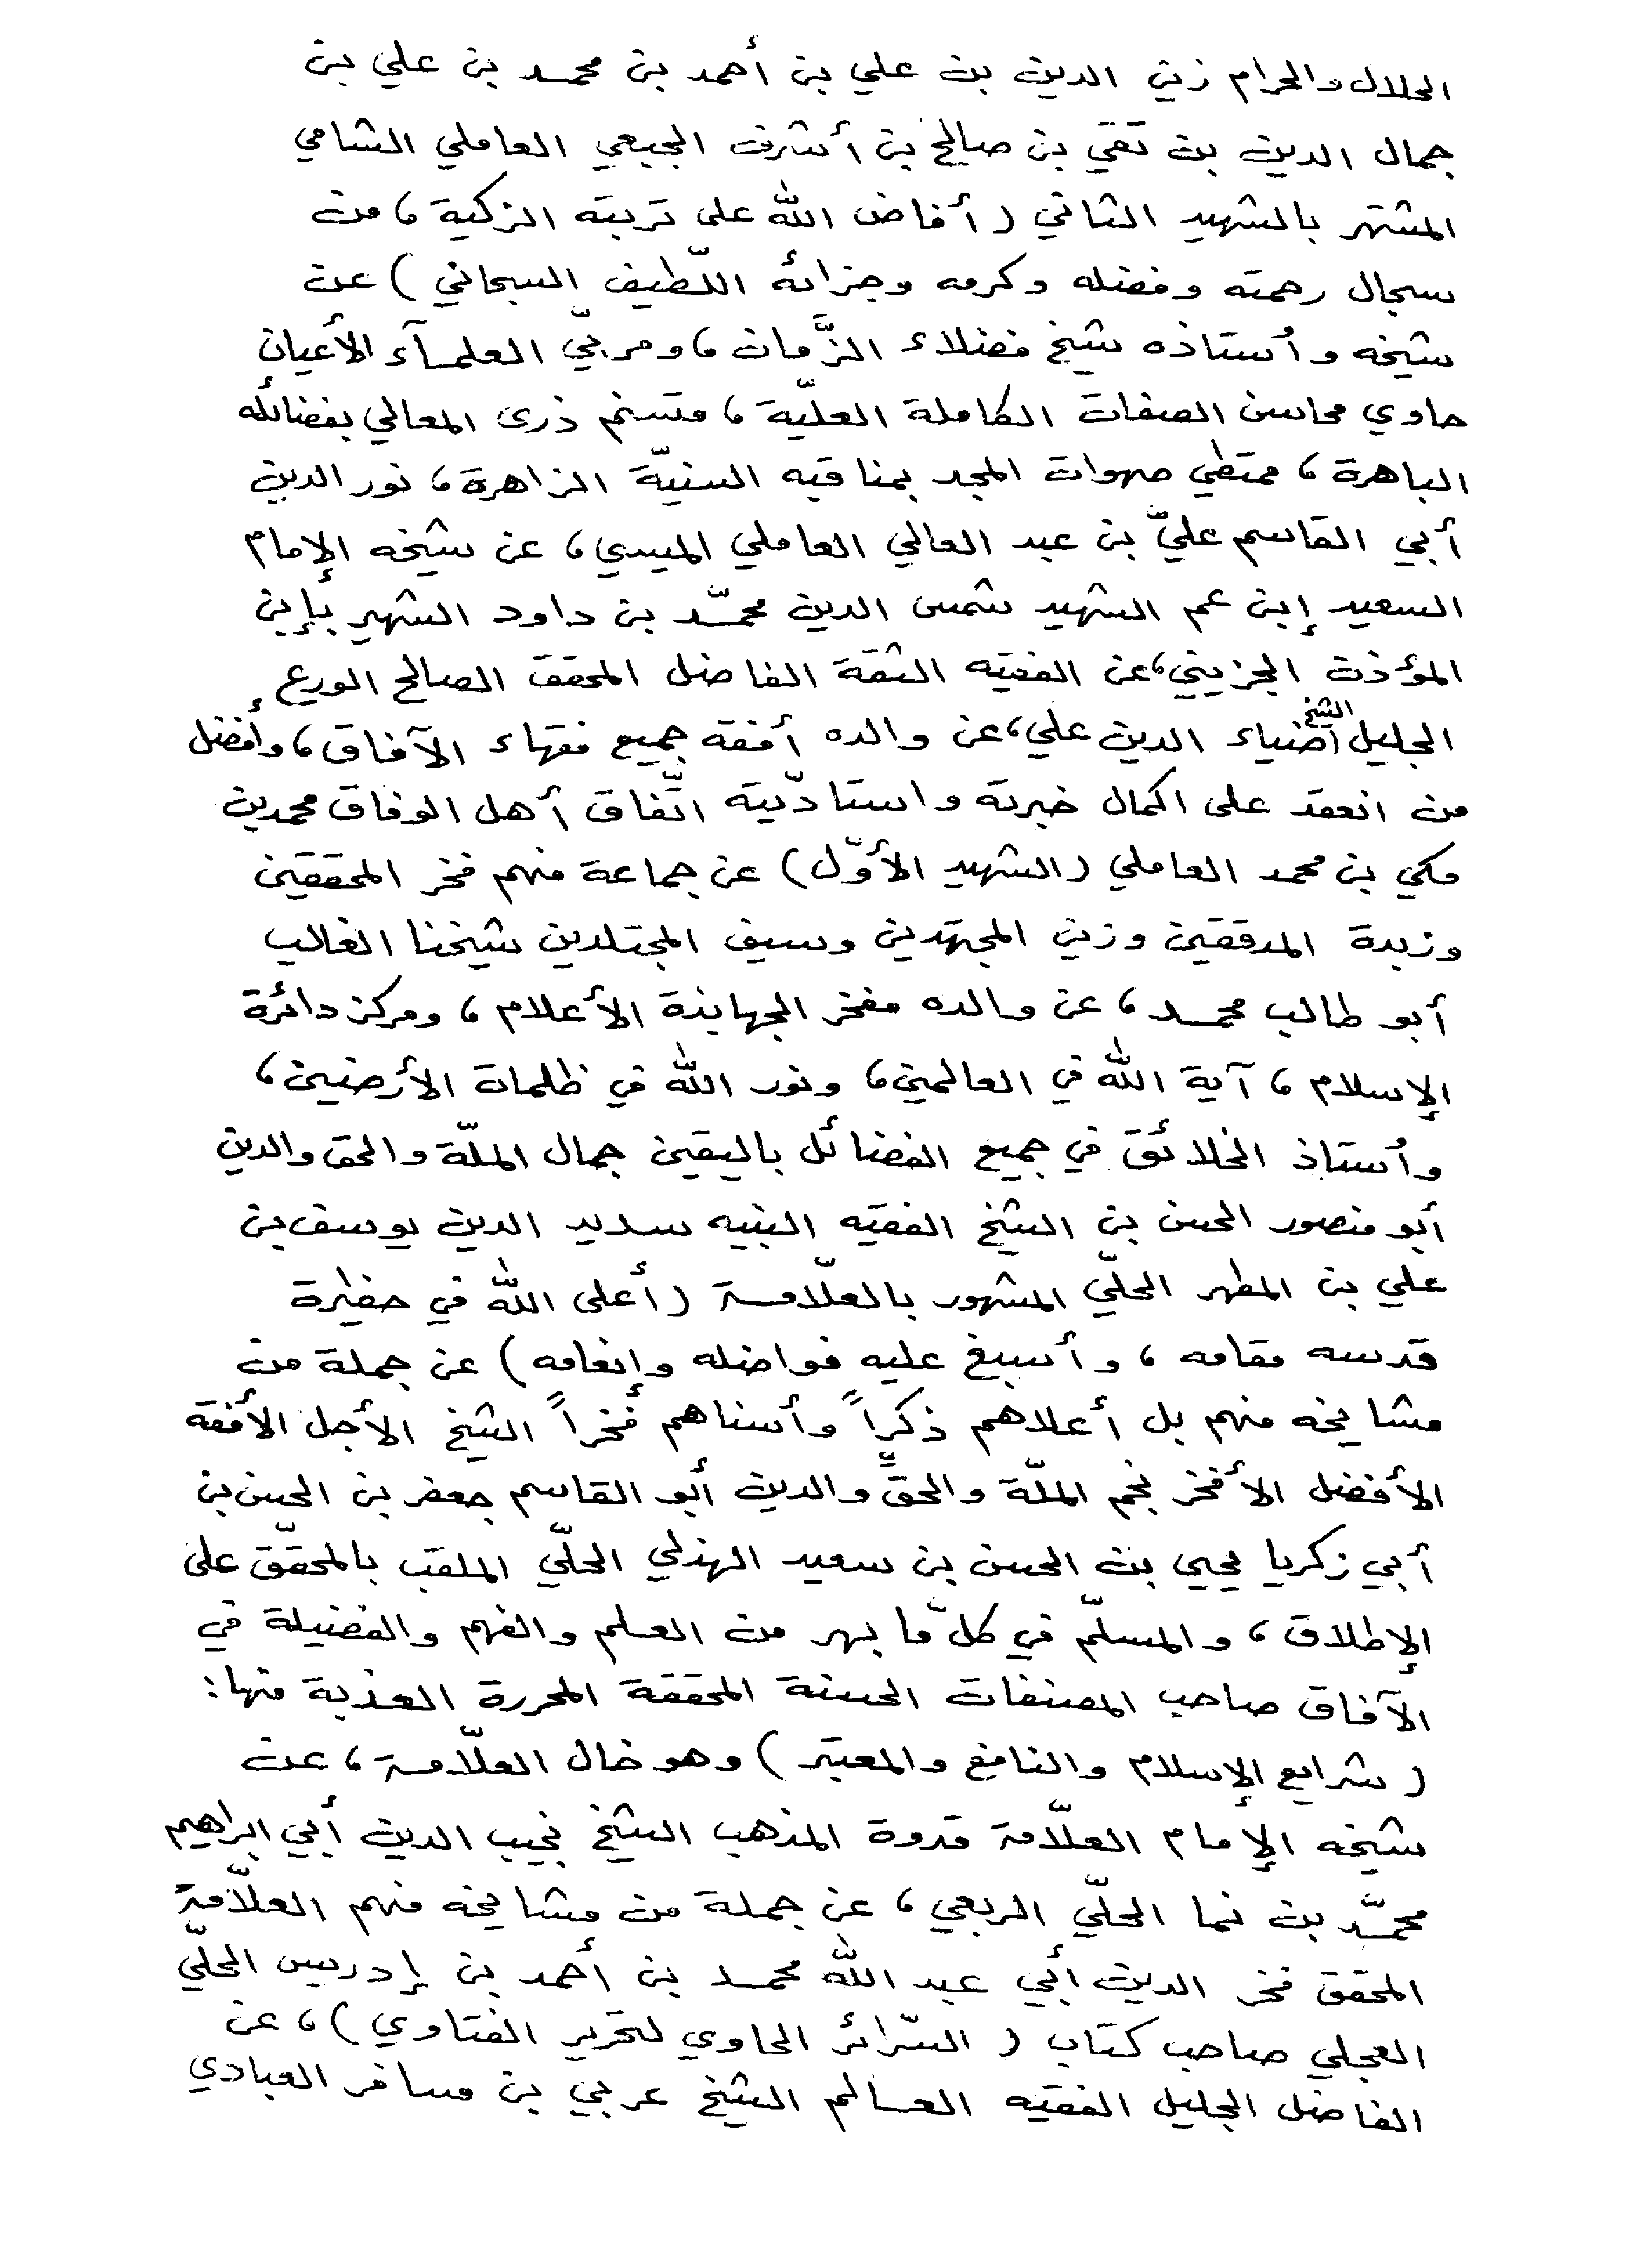 الحلال والحرام زين الدين بن علي بن أحمد بن محمد بن علي بن
جمال الدين بن تقي بن صالح بن أشرف الجبعي العاملي الشامي
المشتهر بالشهيد الثاني (أفاض الله على تربته الزكية، من
سجال رحمته وفضله وكرمه وجزائه اللّطيف السبحاني) عن
شيخه وأُستاذه شيخ فضلاء الزَّمان، ومربّي العلمآء الأعيان
حاوي محاسن الصفات الكاملة العليّة، متسنم ذرى المعالي بفضائله
الباهرة، ممتطي صهوات المجد بمناقبه السنيّة الزاهرة، نور الدين
أبي القاسم عليّ بن عبد العالي العاملي الميسي، عن شيخه الإمام
السعيد إبن عم الشهيد شمس الدين محمّد بن داود الشهير بإبن
المؤذن الجزيني، عن الفقيه الثقة الفاضل المحقق الصالح الورع
الجليل الشيخ ضياء الدين علي، عن والده أفقه جميع فقهاء الآفاق، وأفضل
من انعقد على اكمال خبرته واستاديّته اتّفاق أهل الوفاق محمد بن
مكي بن محمد العاملي (الشهيد الأوّل) عن جماعة منهم فخر المحققين
وزبدة المدققين وزين المجتهدين وسيف المجتلدين شيخنا الغالب
أبو طالب محمد، عن والده مفخر الجهابذة الأعلام، ومركز دائرة
الإسلام، آية الله في العالمين، ونور الله في ظلمات الأرضين،
وأُستاذ الخلائق في جميع الفضائل باليقين جمال الملّة والحق والدين
أبو منصور الحسن بن الشيخ الفقيه النبيه سديد الدين يوسف بن
علي بن المطهر الحلّي المشهور بالعلّامة (أعلى الله في حضيرة
قدسه مقامه، وأسبغ عليه فواضله وإنعامه) عن جملة من
مشايخه منهم بل أعلاهم ذكراً وأسناهم فخراً الشيخ الأجل الأفقه
الأفضل الأفخر نجم الملّة والحقّ والدين أبو القاسم جعفر بن الحسن بن
أبي زكريا يحيى بن الحسن بن سعيد الهذلي الحلّي الملقب بالمحقّق على
الإطلاق، والمسلّم في كلّ ما بهر من العلم والفهم والفضيلة في
الآفاق صاحب المصنفات الحسنة المحققة المحررة العذبة منها:
(شرايع الإسلام والنافع والمعتبر) وهو خال العلّامة، عن
شيخه الإمام العلّامة قدوة المذهب الشيخ نجيب الدين أبي ابراهيم
محمّد بن نما الحلّي الربعي، عن جملة من مشايخه منهم العلّامة
المحقق فخر الدين أبي عبد الله محمد بن أحمد بن إدريس الحلّي
العجلي صاحب كتاب (السّرائر الحاوي لتحرير الفتاوي)، عن
الفاضل الجليل الفقيه العالم الشيخ عربي بن مسافر العبادي